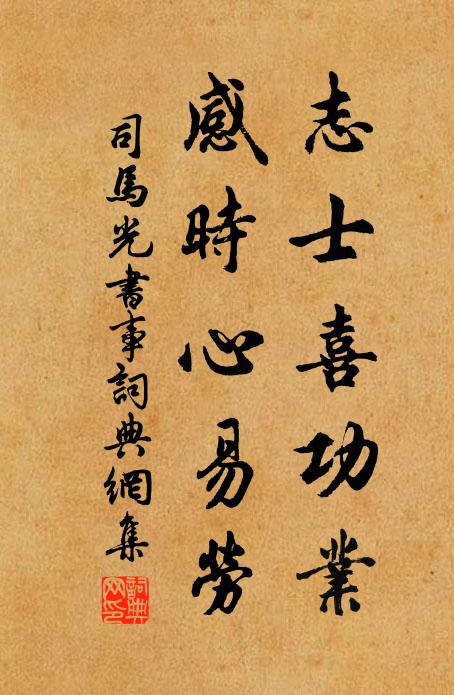 志士喜功業
感時心易勞
司馬光書事詞典網集
詞典網印